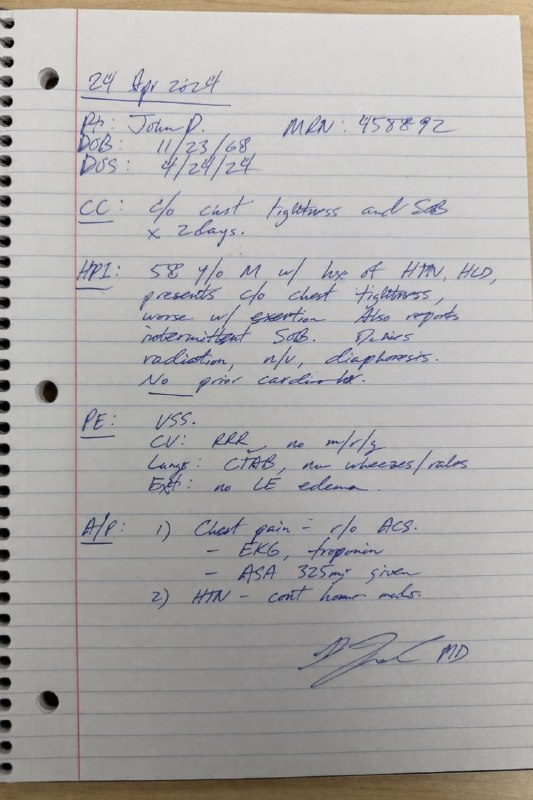 24 Apr 2024
Pt: John D. MRN: 458892
DOB: 11/23/68
DOS: 4/24/24
CC: c/o chest tightness and SOB
x 2 days.
HPI: 58 y/o M w/ hx of HTN, HLD,
presents c/o chest tightness,
worse w/ exertion Also reports
intermittent SOB. Denies
radiation, n/v, diaphoresis.
No prior cardiac hx.
PE: VSS.
CV: RRR, no m/r/g
Lungs: CTAB, no wheezes/rales
Ext: no LE edema.
A/P: 1) Chest pain - r/o ACS.
- EKG, troponin
- ASA 325mg given
2) HTN - cont home meds.
MD